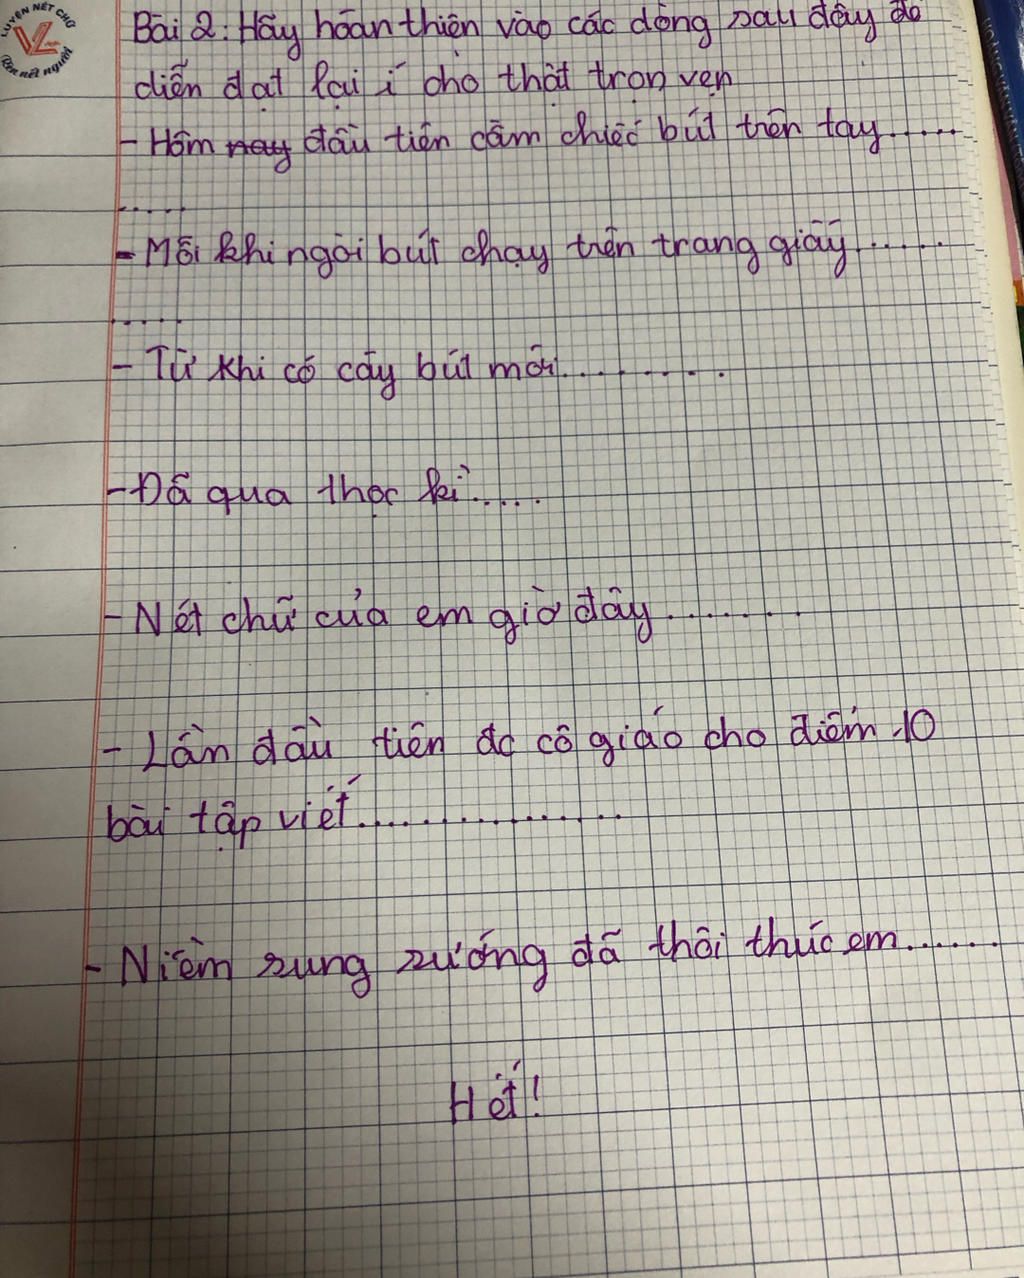 LUYỆN NÉT CHỮ
VL
Rèn nết người
Bài 2: Hãy hoàn thiện vào các dòng sau đây để
diễn đạt lại í cho thật trọn vẹn
- Hôm nay đầu tiên cầm chiếc bút trên tay......
.....
- Mỗi khi ngòi bút chạy trên trang giấy......
.....
- Từ khi có cây bút mới..........
- Đã qua 1 học kì.....
- Nét chữ của em giờ đây........
- Lần đầu tiên đc cô giáo cho điểm 10
bài tập viết................
- Niềm sung sướng đã thôi thúc em......
Hết!